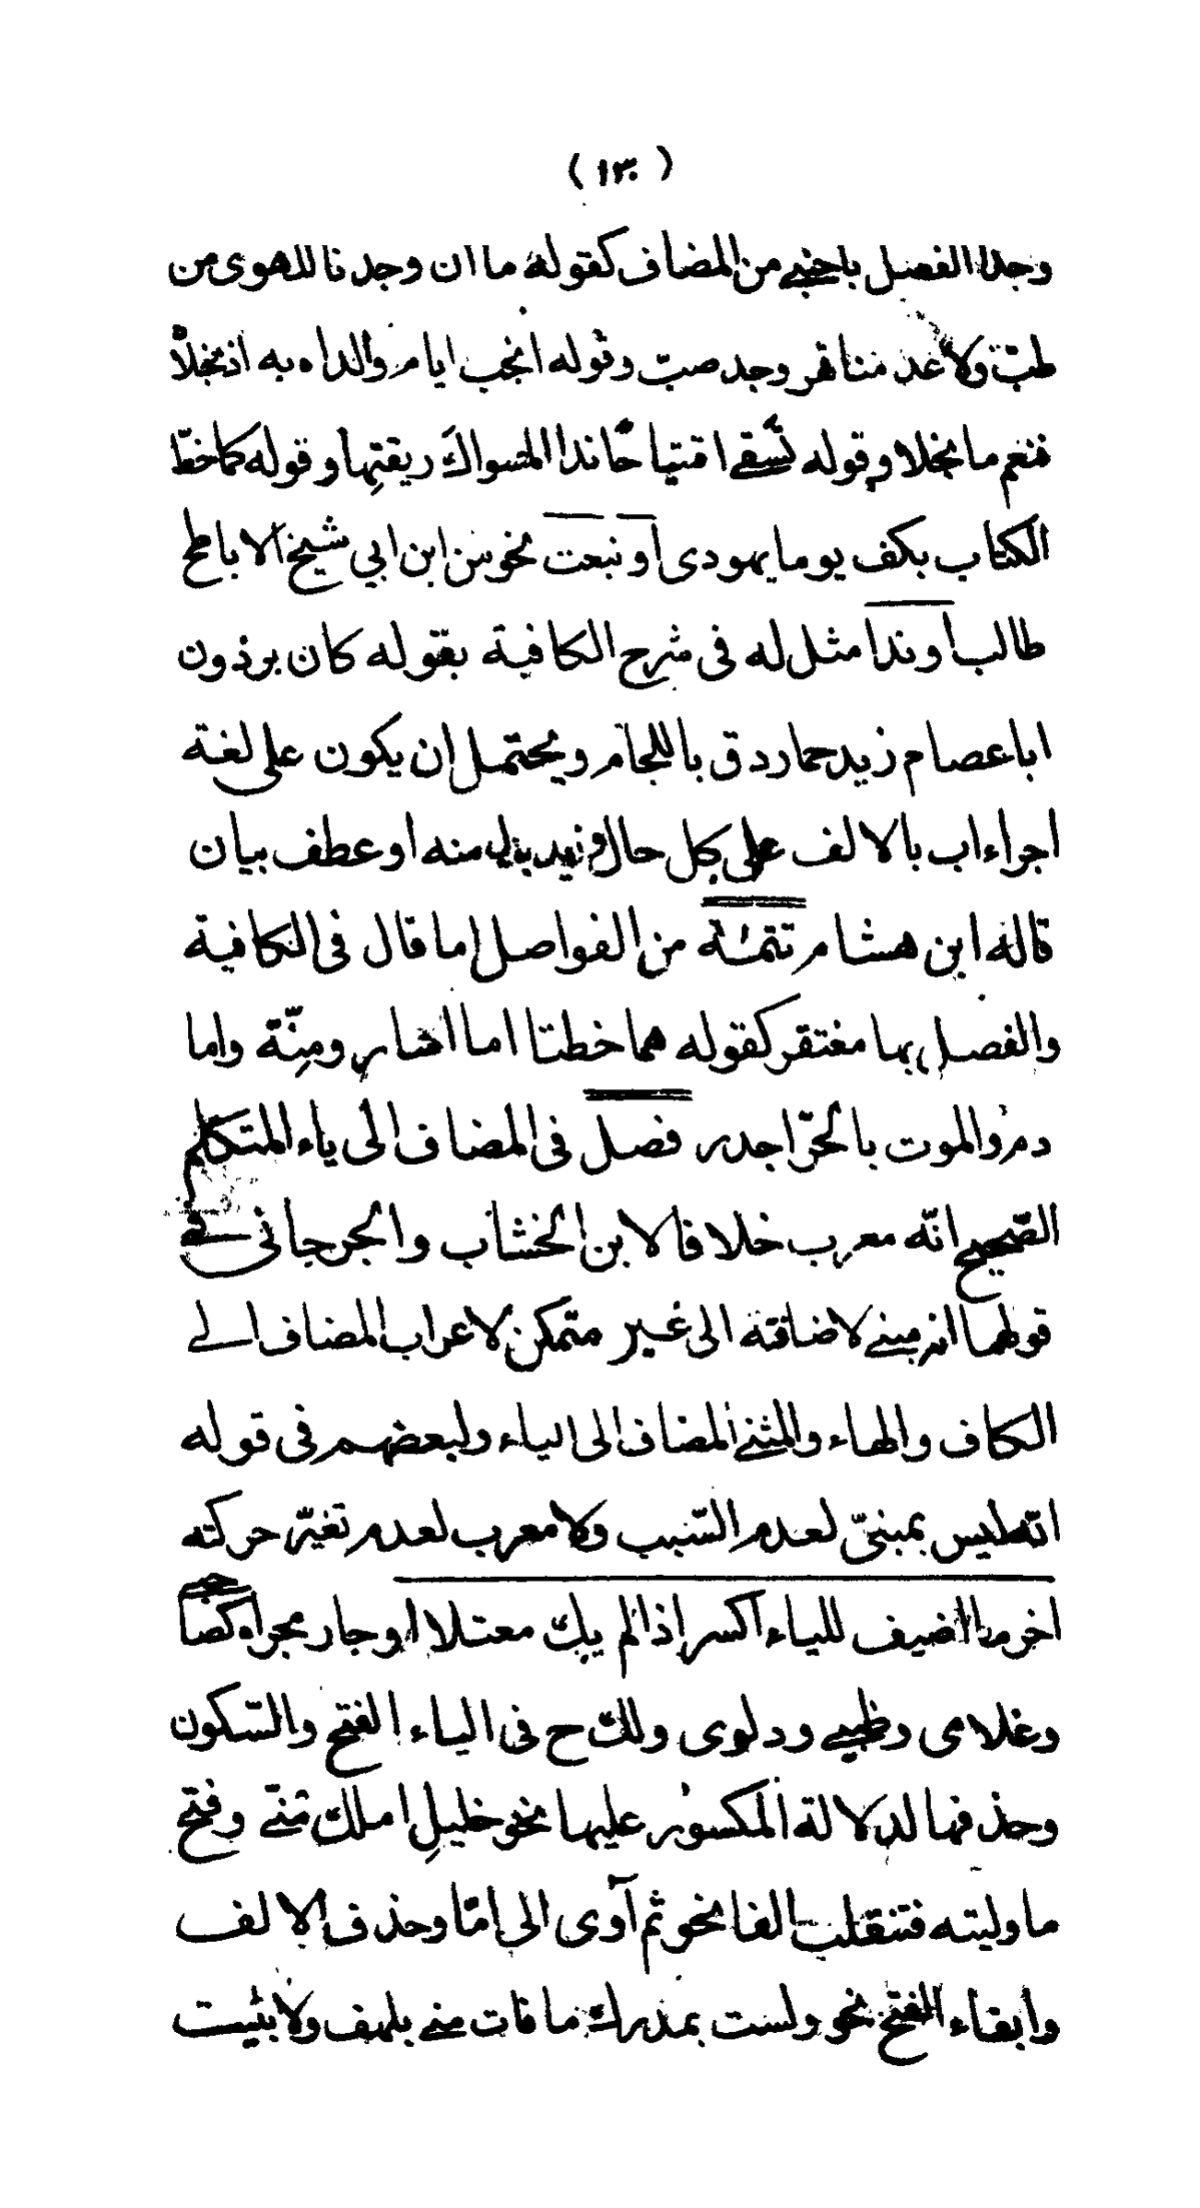 ( ١٣٠ )
وجدا الفصل باجنبي من المضاف كقوله ما ان وجدنا للهوى من
طبّ ولا عدمنا قهر وجد صبّ وقوله انجب ايام والداه به اذ نجلاه
فنعم ما نجلا وقوله تسقى امتياحًا ندا المسواكَ ريقتِها وقوله كما خطّ
الكتاب بكف يوما يهودى او نبعت نحو من ابن ابي شيخ الاباطح
طالب او ندا مثل له فى شرح الكافية بقوله كان برذون
ابا عصام زيد حمار دق باللجام ويحتمل ان يكون على لغة
اجراء اب بالالف على كل حال وزيد بدل منه او عطف بيان
قاله ابن هشام تتمة من الفواصل اما قال فى الكافية
والفصل بها مغتقر كقوله هما خطتا اما اسار ومنّة واما
دم والموت بالحرّ اجدر فصل فى المضاف الى ياء المتكلم
الصّحيح انّه معرب خلافا لابن الخشاب والجرجانى فى
قولهما انه مبنى لاضافته الى غير متمكن لاعراب المضاف الى
الكاف والهاء والمثنى المضاف الى الياء ولبعضهم فى قوله
انه ليس بمبنىّ لعدم السّبب ولا معرب لعدم تغيّر حركته
اخر ما اضيف للياء اكسر اذا لم يك معتلا او جار مجراه كصاحبى
وغلامى وظبيى ودلوى ولك ح فى الياء الفتح والسّكون
وحذفها لدلالة المكسور عليها نحو خليلِ املك منّى وفتح
ما وليته فتنقلب الفا نحو ثم آوى الى امّا وحذف الالف
وابقاء الفتح نحو ولست بمدرك ما فات منى بلهف ولا بليت